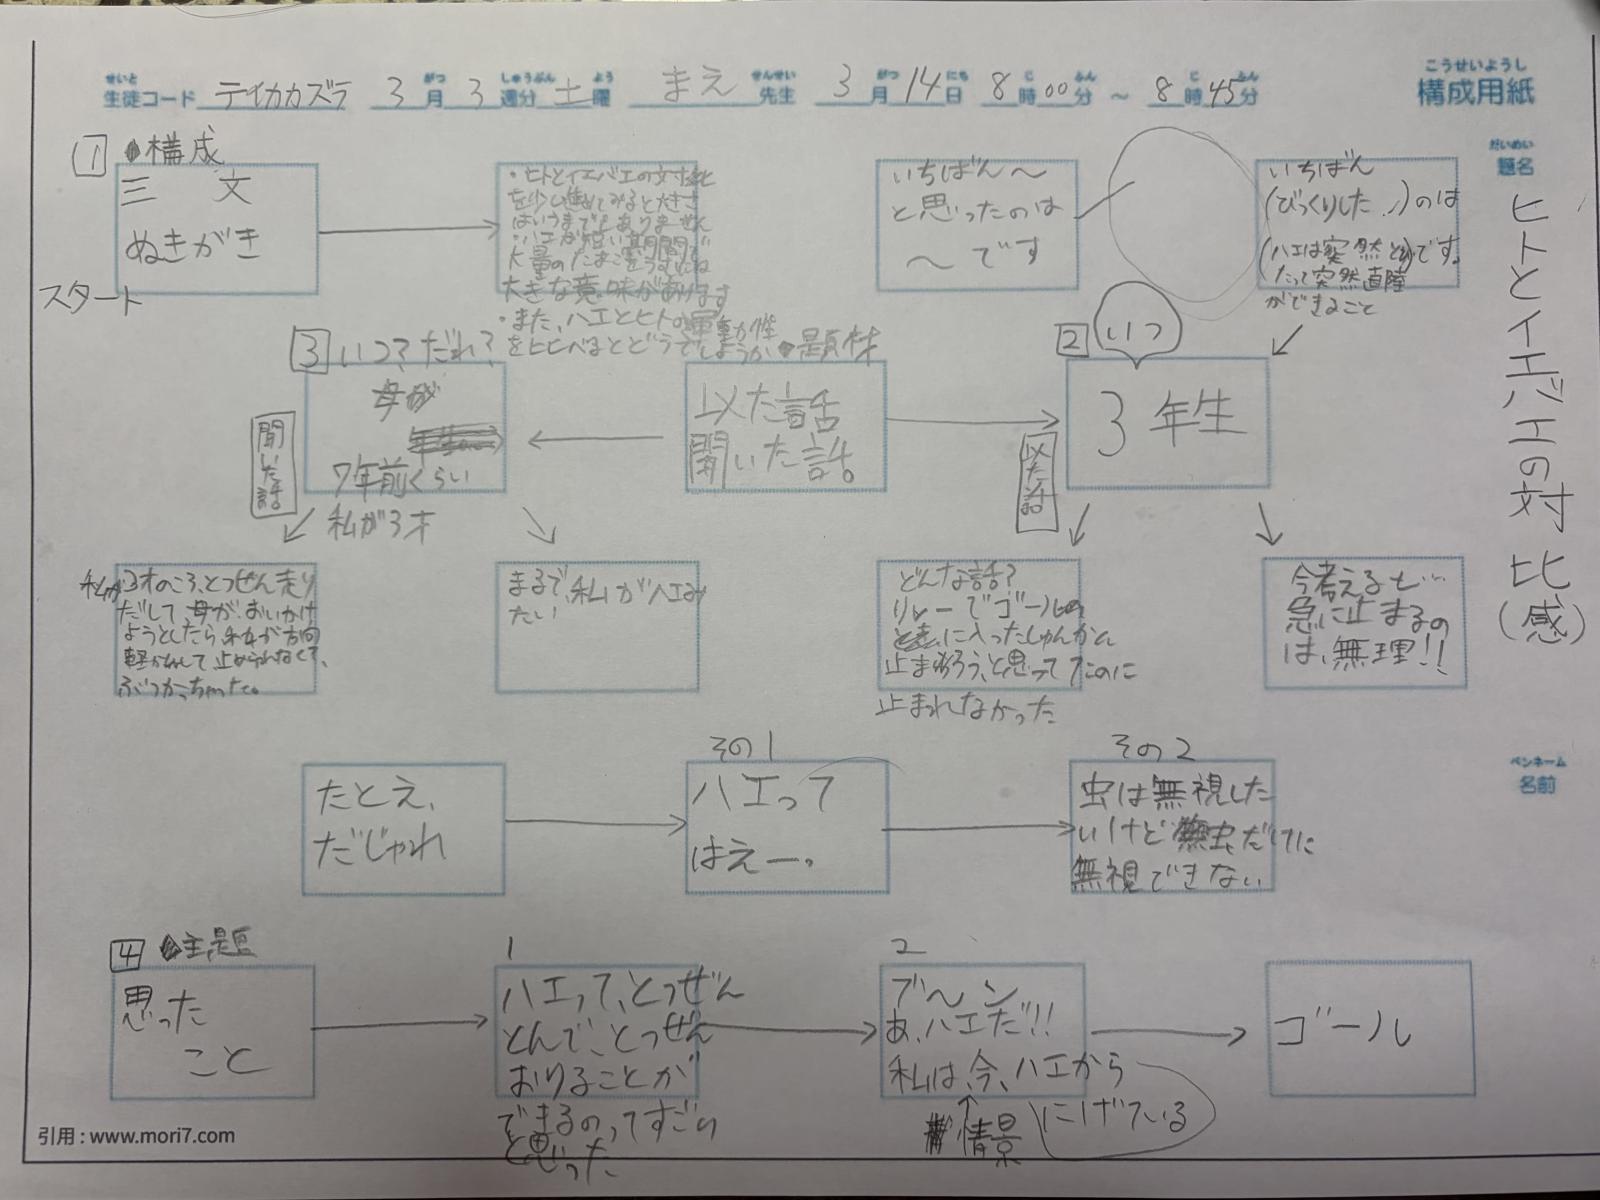 せいと がつ しゅうぶん よう せんせい がつ にち じ ふん じ ふん
生徒コード テイカカズラ 3月 3週分 土曜 まえ 先生 3月14日 8時00分 ~ 8時45分
こうせいようし
構成用紙
だいめい
題名
ヒトとイエバエの対比(感)
1 構成
三 文
ぬきがき
スタート
・ヒトとイエバエの対比
を少し進めてみると大きさ
はいうまでもありません
・ハエが短い期間で
大量のたまごをうむには
大きな意味があります
・また、ハエとヒトの運動性
を比べるとどうでしょうか
いちばん~
と思ったのは
~です
いちばん
(びっくりした…)のは
(ハエは突然と)です。
たって突然直陸
ができること
3 いつ?だれ?
母が
7年前くらい
私が3才
聞いた話
題材
似た話
聞いた話。
2 いつ
3年生
似た話
私が3才のころ、とつぜん走り
だして母が、おいかけ
ようとしたら私が方向
止められなくて、
ぶつかっちゃった。
まるで、私がハエみ
たい
どんな話?
リレーでゴールの
ときに入ったしゅんかん
止まろう、と思ってたのに
止まれなかった
今考えると…
急に止まるの
は、無理!!
たとえ、
だじゃれ
その1
ハエって
はえー。
その2
虫は無視した
いけど 虫だけに
無視できない
ペンネーム
名前
4 主題
思った
こと
1
ハエって、とつぜん
とんで、とつぜん
おりることが
できるのってすごい
と思った
2
ブ~ン
あ、ハエだ!!
私は、今、ハエから
にげている
情景
ゴール
引用:www.mori7.com